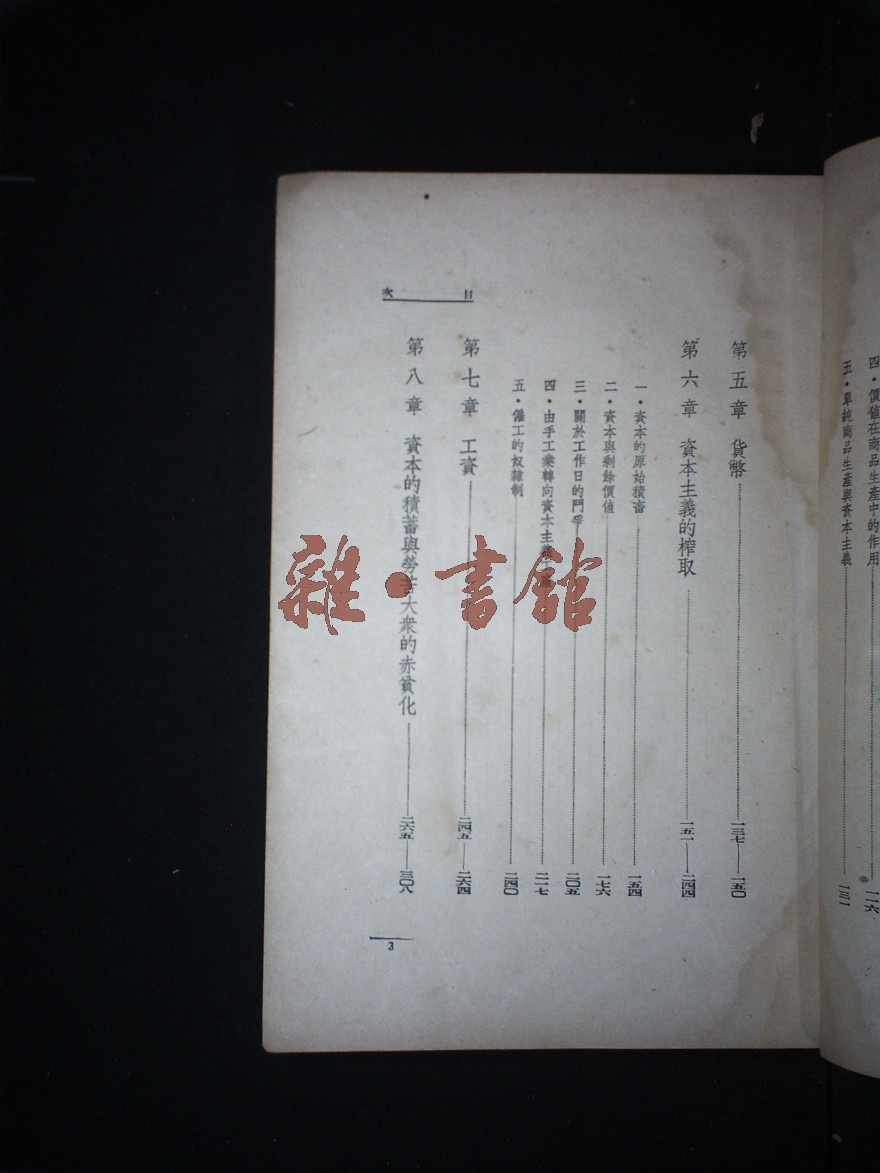 四・價值在商品生產中的作用 一一六
五・單純商品生產與資本主義 一三一
目次
第五章 貨幣 一三七——一五〇
第六章 資本主義的榨取 一五一——二四四
一・資本的原始積畜 一五四
二・資本與剩餘價值 一七六
三・關於工作日的鬥爭 二〇五
四・由手工業轉向資本主 二一七
五・傭工的奴隸制 二四〇
第七章 工資 二四五——二六四
第八章 資本的積蓄與勞苦大衆的赤貧化 二六五——三〇八
3
雜・書館